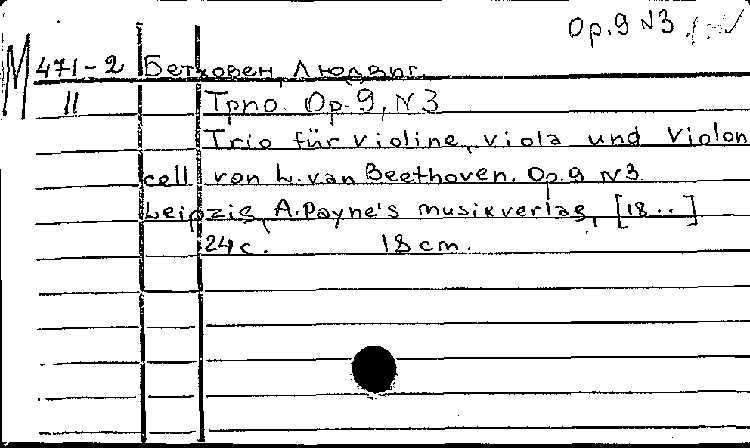 Op.9 N3
M 471-2 Бетховен, Людвиг.
II Трио. Op. 9, N 3
Trio für violine, viola und violon
cell von L. van Beethoven. Op. 9 N3
Leipzig, A. Payne's musikverlag, [18..]
24 c. 18 cm.